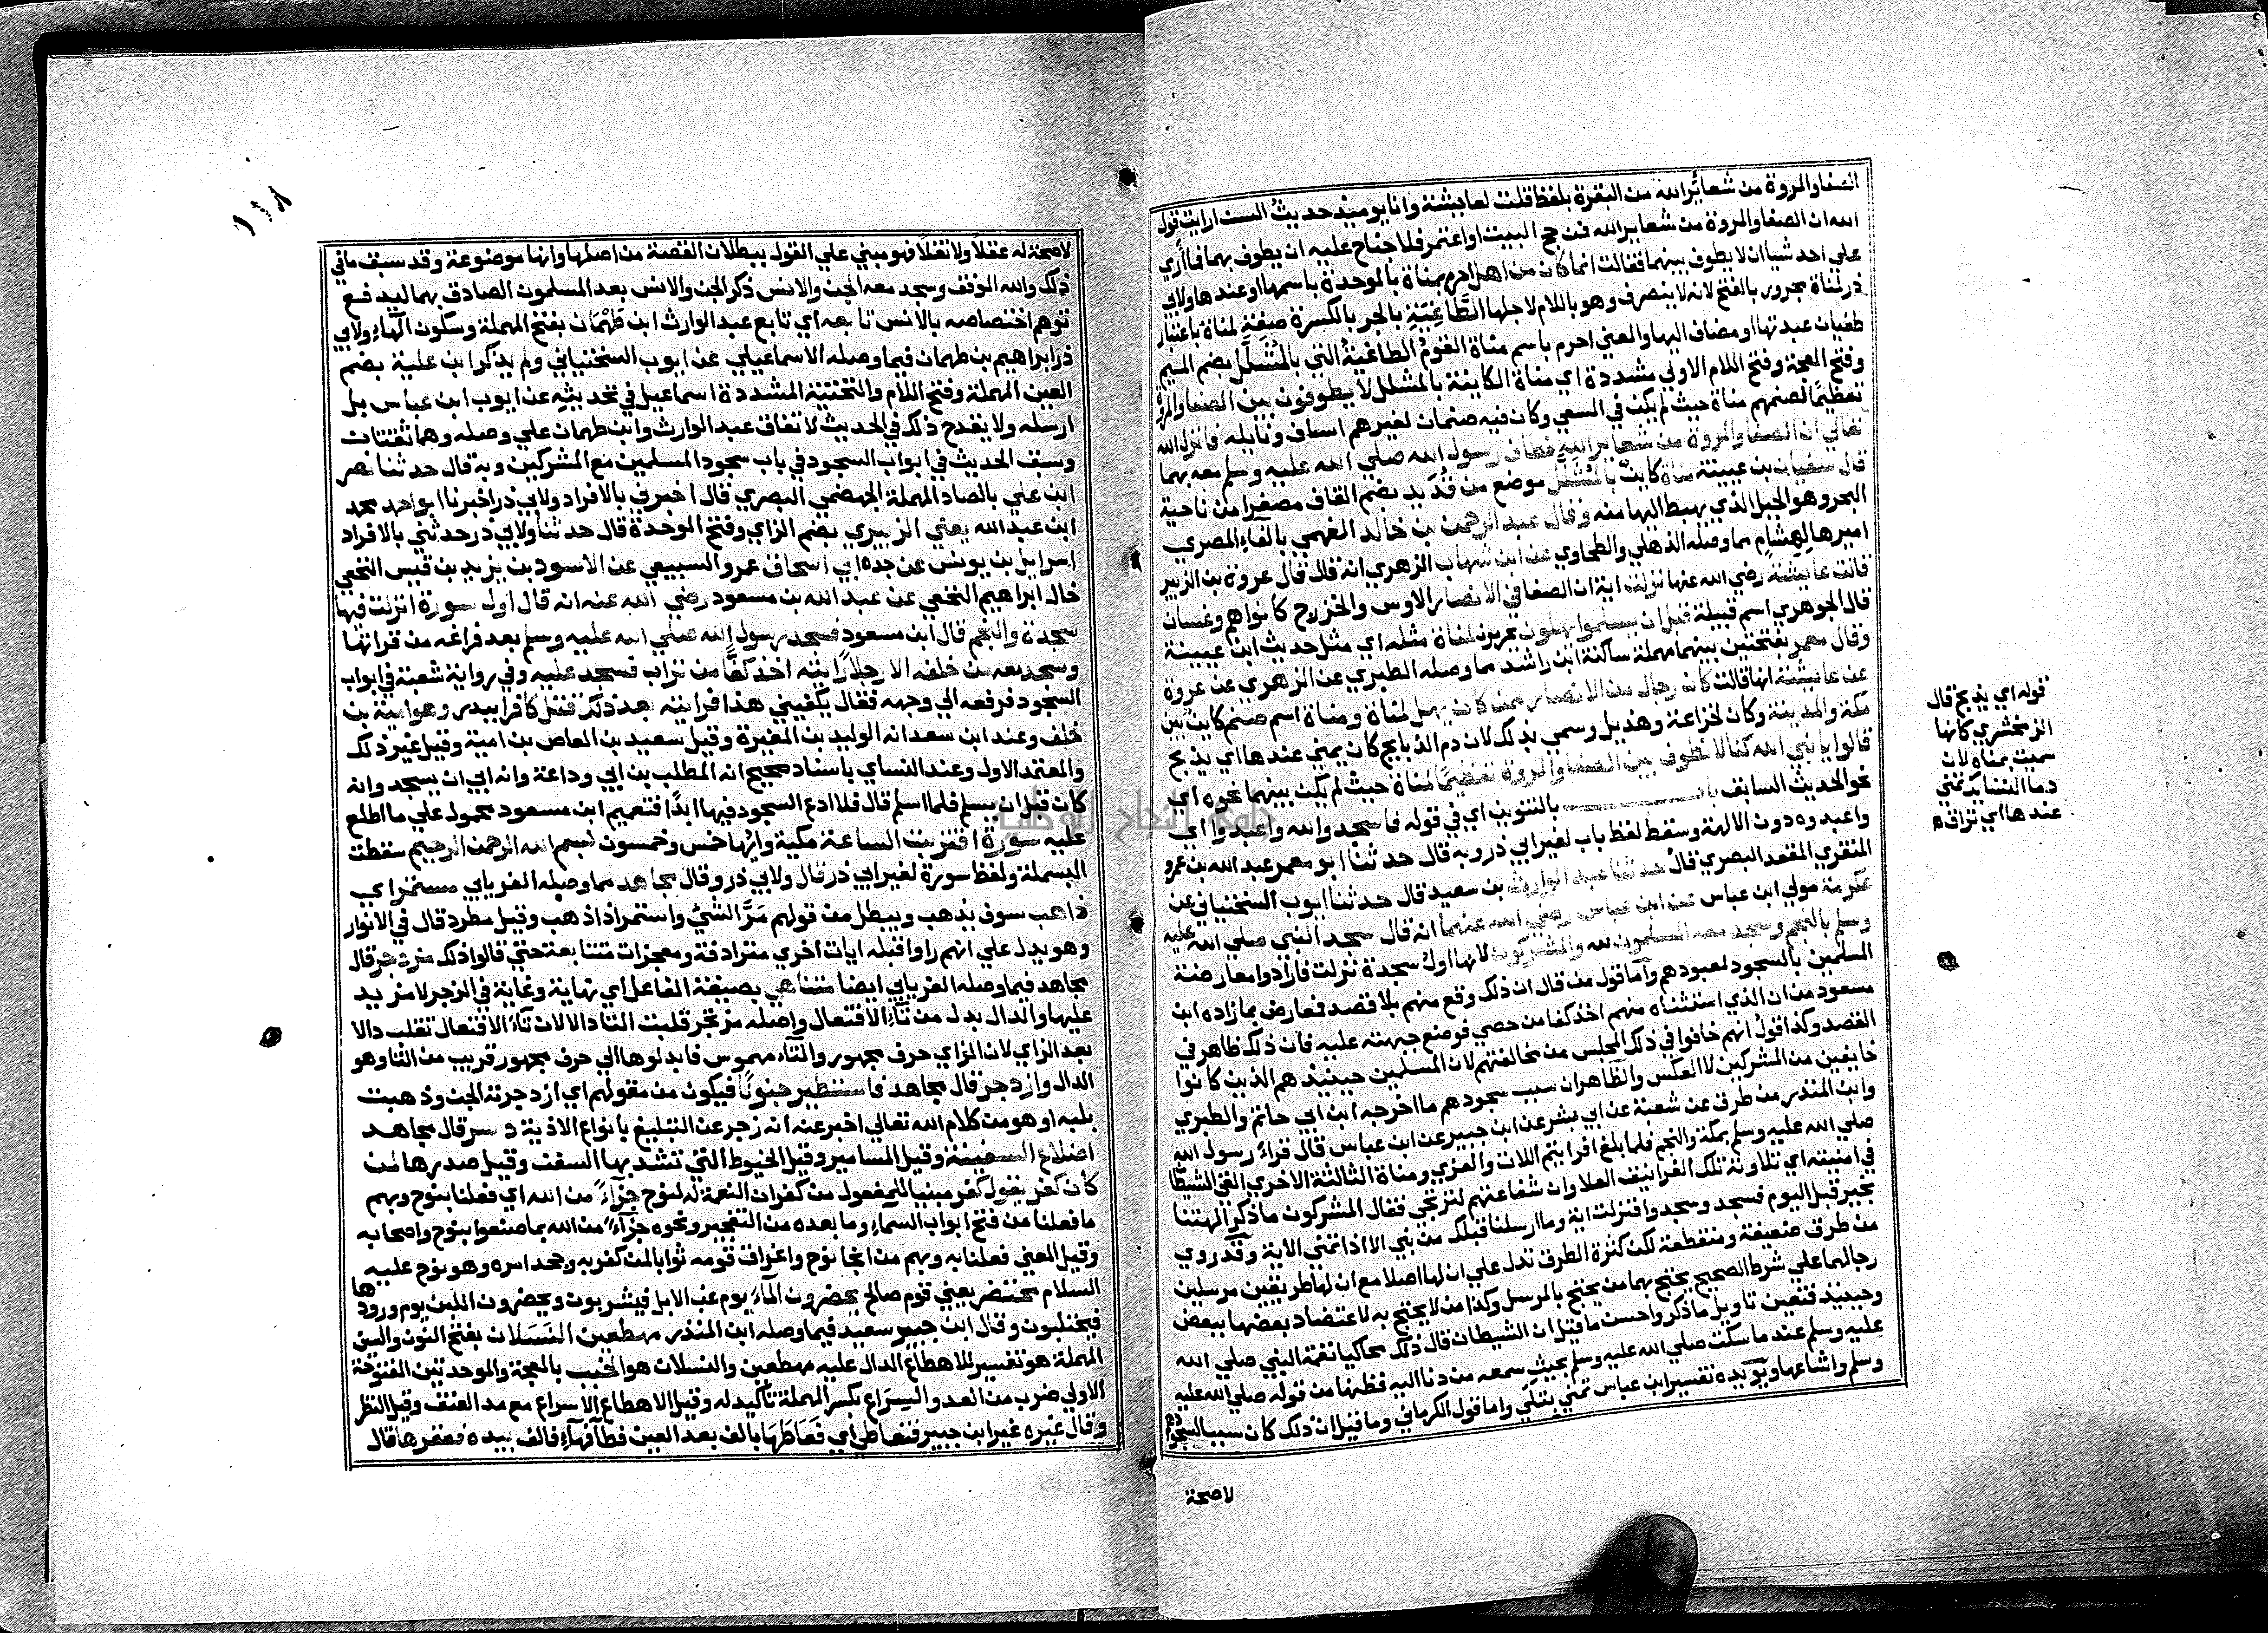 الصفا والمروة من شعائر الله من البقرة بلفظ قلت لعايشة وانا يوميذ حديث السن ارايت قول
الله ان الصفا والمروة من شعاير الله فمن حج البيت او اعتمر فلا جناح عليه ان يطوف بهما فما أري
علي احد شيا ان لا يطوف بينهما فقالت انما كان من اهل احرم بمناة بالموحدة باسمها او عندها ولابي
ذر لمناة مجرور بالفتح لانه لا ينصرف وهو باللام لاجلها الطَّاغِيَةِ بالجر بالكسرة صفة لمناة باعتبار
طغيان عبدتها او مضاف اليها والمعني احرم باسم مناة القومُ الطاغيةُ التي بالمُشَلَّل بضم الميم
وفتح المعجمة وفتح اللام الاولي مشددة اي مناة الكاينة بالمشلل لا يطوفون بين الصفا والمروة
تعظيمًا لصنمهم مناة حيث لم يكن في السعي وكان فيه صنمان لغيرهم اساف ونايله فانزل الله
تعالي ان الصفا والمروة من شعاير الله فطاف رسول الله صلي الله عليه وسلم معه بهما
قال سفيان بن عيينة مناة كاين بالمشلل موضع من قُدَيد بضم القاف مصغرا من ناحية
البحر وهو الجبل الذي يهبط اليها منه وقال عبد الرحمن بن خالد الفهمي بالفاء المصري
اميرها لهشام مما وصله الذهلي والطحاوي عن ابن شهاب الزهري انه قال قال عروة بن الزبير
قالت عايشة رضي الله عنها نزلت اية ان الصفا في الانصار الاوس والخزرج كانوا هم وغسان
قال الجوهري اسم قبيلة قبل ان يسلموا يهلون يحرمون لمناة مثله اي مثل حديث ابن عيينة
وقال معمر بفتحتين بينهما مهملة ساكنة ابن راشد مما وصله الطبري عن الزهري عن عروة
عن عايشة انها قالت كان رجال من الانصار ممن كان يهل لمناة ومناة اسم صنم كاين بين
مكة والمدينة وكان لخزاعة وهذيل وسمي بذلك لان دم الذبايح كان يمني عندها اي يذبح
قالوا يا نبي الله كنا لا نطوف بين الصفا والمروة تعظيمًا لمناة حيث لم يكن بينهما نحوه اي
نحو الحديث السابق باب بالتنوين اي في قوله فاسجدوا لله واعبدوا اي
واعبدوه دون الالهة وسقط لفظ باب لغير ابي ذر وبه قال حدثنا ابو معمر عبد الله بن عمرو
المنقري المقعد البصري قال حدثنا عبد الوارث بن سعيد قال حدثنا ايوب السختياني عن
عكرمة مولي ابن عباس عن ابن عباس رضي الله عنهما انه قال سجد النبي صلي الله عليه
وسلم بالنجم وسجد معه المسلمون لله والمشركون لانها اول سجدة نزلت فارادوا معارضة
المسلمين بالسجود لمعبودهم واما قول من قال ان ذلك وقع منهم بلا قصد فمعارض بما زاده ابن
مسعود من ان الذي استثناه منهم اخذ كفا من حصي فوضع جبهته عليه فان ذلك ظاهر في
القصد وكذا قول انهم خافوا في ذلك المجلس من مخالفتهم لان المسلمين حينيذ هم الذين كانوا
خايفين من المشركين لا العكس والظاهر ان سبب سجودهم ما اخرجه ابن ابي حاتم والطبري
وابن المنذر من طرق عن شعبة عن ابي بشر عن ابن جبير عن ابن عباس قال قراء رسول الله
صلي الله عليه وسلم بمكة والنجم فلما بلغ افرايتم اللات والعزي ومناة الثالثة الاخري القي الشيطان
في امنيته اي تلاوته تلك الغرانيق العلا وان شفاعتهم لترتجي فقال المشركون ما ذكر الهتنا
بخير قبل اليوم فسجد وسجدوا فنزلت اية وما ارسلنا قبلك من نبي الا اذا تمني الاية وقد روي
من طرق ضعيفة ومنقطعة لكن كثرة الطرق تدل علي ان لها اصلا مع ان لها طريقين مرسلين
رجالهما علي شرط الصحيح يحتج بهما من يحتج بالمرسل وكذا من لا يحتج به لاعتضاد بعضها ببعض
وحينيذ فتعين تاويل ما ذكر واحسن ما قيل ان الشيطان قال ذلك محاكيا نغمة النبي صلي الله
عليه وسلم عندما سكت صلي الله عليه وسلم بحيث سمعه من دنا اليه فظنها من قوله صلي الله عليه
وسلم واشاعها ويويده تفسير ابن عباس تمني بتلي واما قول الكرماني وما قيل ان ذلك كان سببا لسجودهم
لا صحة
قوله اي يذبح قال
الزمخشري كانها
سميت بمناة لان
دما النسايك تمني
عندها اي تراق
١١٨
لا صحة له عقلاً ولا نقلاً فهو مبني علي القول ببطلان القصة من اصلها وانها موضوعة وقد سبق ما في
ذلك والله الموفق وسجد معه الجن والانس ذكر الجن والانس بعد المسلمون الصادق بهما ليدفع
توهم اختصاصه بالانس تابعه اي تابع عبد الوارث ابن طَهْمَان بفتح المهملة وسكون الهاء ولابي
ذر ابراهيم بن طهمان فيما وصله الاسماعيلي عن ايوب السختياني ولم يذكر ابن علية بضم
العين المهملة وفتح اللام والتحتية المشددة اسماعيل في تحديثه عن ايوب ابن عباس بل
ارسله ولا يقدح ذلك في الحديث لاتفاق عبد الوارث وابن طهمان علي وصله وهما ثقتان
وسبق الحديث في ابواب السجود في باب سجود المسلمين مع المشركين وبه قال حدثنا نصر
ابن علي بالصاد المهملة الجهضمي البصري قال اخبرني بالافراد ولابي ذر اخبرنا ابو احمد محمد
ابن عبد الله يعني الزبيري بضم الزاي وفتح الموحدة قال حدثنا ولابي ذر حدثني بالافراد
اسرايل بن يونس عن جده ابي اسحاق عمرو السبيعي عن الاسود بن يزيد بن قيس النخعي
خال ابراهيم النخعي عن عبد الله بن مسعود رضي الله عنه انه قال اول سورة انزلت فيها
سجدة والنجم قال ابن مسعود فسجد رسول الله صلي الله عليه وسلم بعد فراغه من قراتها
وسجد معه من خلفه الا رجلا رايته اخذ كفًّا من تراب فسجد عليه وفي رواية شعبة في ابواب
السجود فرفعه الي وجهه فقال يكفيني هذا فرايته بعد ذلك قتل كافرا ببدر وهو امية بن
خلف وعند ابن سعد انه الوليد بن المغيرة وقيل سعيد بن العاص بن امية وقيل غير ذلك
والمعتمد الاول وعند النساي باسناد صحيح انه المطلب بن ابي وداعة وانه ابي ان يسجد وانه
كان قبل ان يسلم فلما اسلم قال فلا ادع السجود فيها ابدًا فتعميم ابن مسعود محمول علي ما اطلع
عليه سورة اقتربت الساعة مكية وايُها خمس وخمسون بسم الله الرحمن الرحيم سقطت
البسملة ولفظ سورة لغير ابي ذر قال ولابي ذر وقال مجاهد مما وصله الفريابي مستمر اي
ذاهب سوف يذهب ويبطل من قولهم مَرَّ الشيُ واستمر اذا ذهب وقيل مطرد قال في الانوار
وهو يدل علي انهم راوا قبله ايات اخري مترادفة ومعجزات متتابعة حتي قالوا ذلك مزدجر قال
مجاهد فيما وصله الفريابي ايضا متناهي بصيغة الفاعل اي نهاية وغاية في الزجر لا مزيد
عليها والدال بدل من تاء الافتعال واصله مزتجر قلبت التا دالا لان تاء الافتعال تقلب دالا
بعد الزاي لان الزاي حرف مجهور والتاء مهموس فابدلوها الي حرف مجهور قريب من التا وهو
الدال وازدجر قال مجاهد فاستطير جنونًا فيكون من مقولهم اي ازدجرته الجن وذهبت
بلبه او هو من كلام الله تعالي اخبر عنه انه زجر عن التبليغ بانواع الاذية دسر قال مجاهد
اضلاع السفينة وقيل المسامير وقيل الخيوط التي تشد بها السفن وقيل صدرها لمن
كان كفر يقول كفر مبنيا للمفعول من كفران النعمة له لنوح جزاءً من الله اي فعلنا بنوح وبهم
ما فعلنا من فتح ابواب السماء وما بعده من التفجير ونحوه جزاءً من الله بما صنعوا بنوح واصحابه
وقيل المعني فعلنا به وبهم من انجا نوح واغراق قومه ثوابا لمن كفر به وجحد امره وهو نوح عليه
السلام محتضر يعني قوم صالح يحضرون الماء يوم غب الابل فيشربون ويحضرون اللبن يوم ورودها
فيحتلبون وقال ابن جبير سعيد فيما وصله ابن المنذر مهطعين النَسَلان بفتح النون والسين
المهملة هو تفسير للاهطاع الدال عليه مهطعين والنسلان هو الخبب بالمعجمة والموحدتين المفتوحة
الاولي ضرب من العدو والسِرَاع بكسر المهملة تاكيد له وقيل الاهطاع الاسراع مع مد العنق وقيل النظر
وقال غيره غير ابن جبير فتعاطي اي فَعَاطَهَا بالف بعد العين فطاء فهاء فالف بيده فعقرها قال